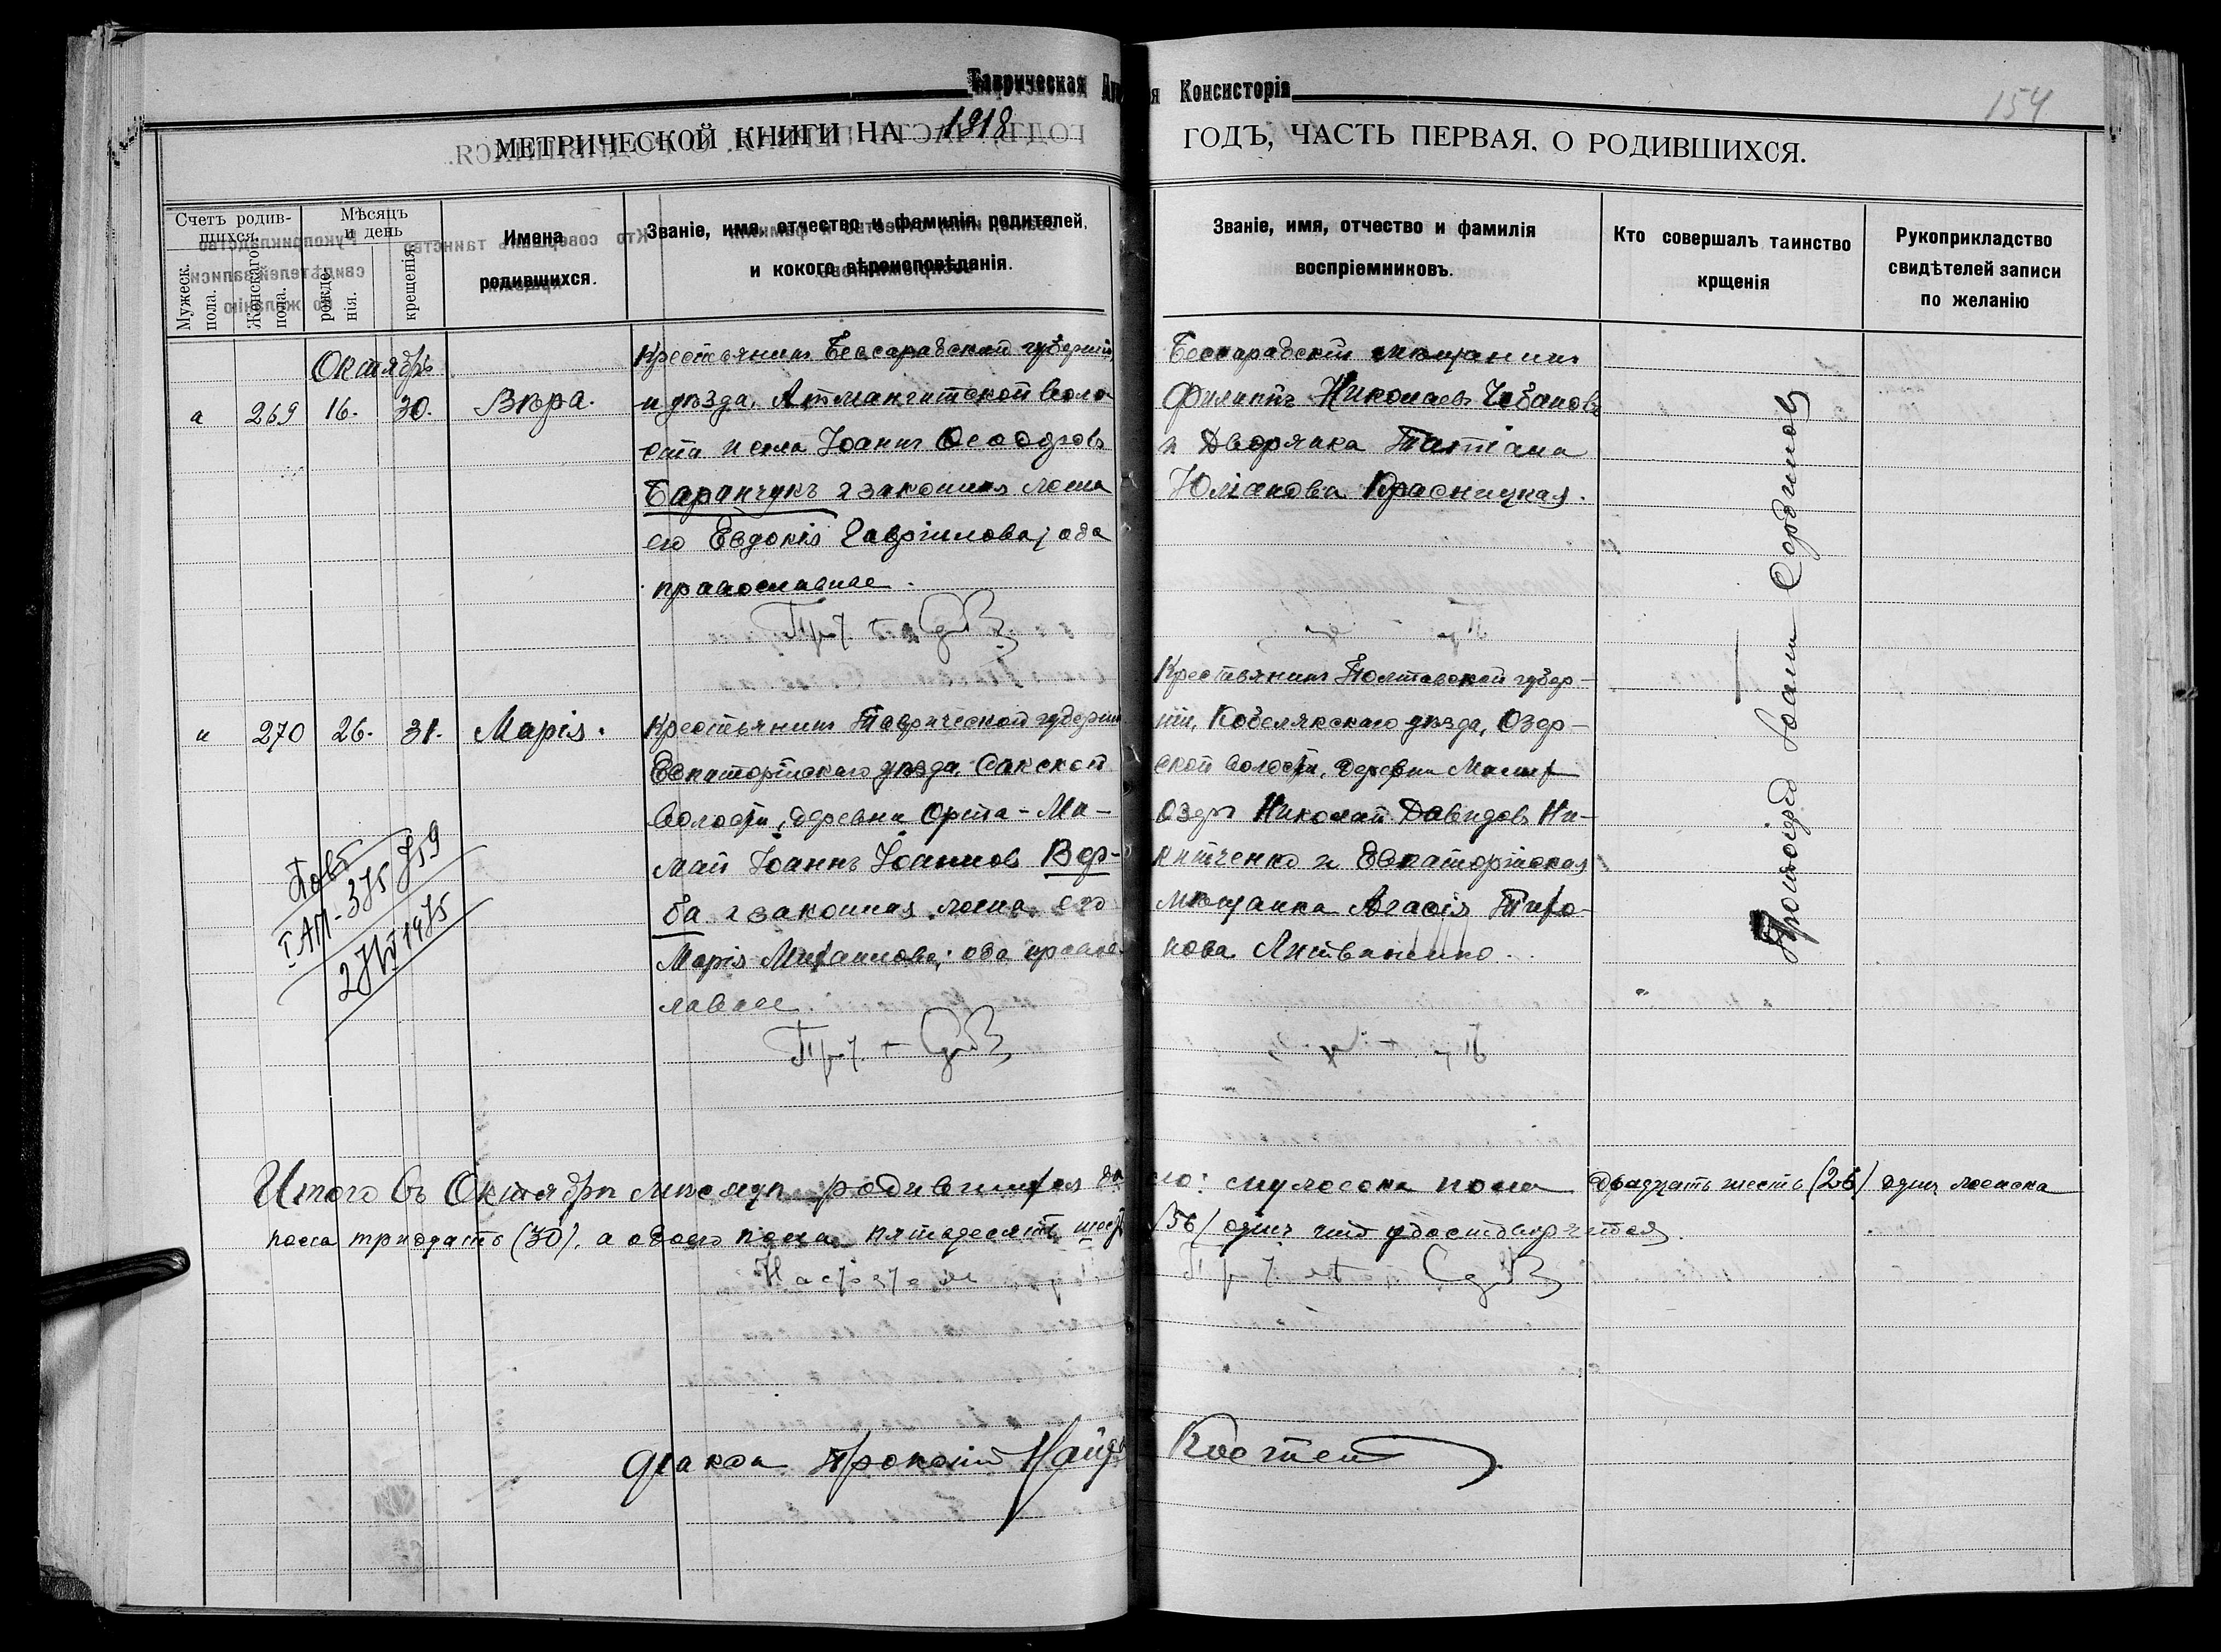 Таврическая Ду я Консисторія
154
МЕТРИЧЕСКОЙ КНИГИ НА 1918 ГОДЪ, ЧАСТЬ ПЕРВАЯ, О РОДИВШИХСЯ.
Счетъ родив-
шихся.
Мужеск. пола.
Женскаго пола.
Мѣсяцъ
и день
рожде-
нія.
крещенія
Имена
родившихся.
Званіе, имя, отчество и фамилія родителей,
и какого вѣроисповѣданія.
Званіе, имя, отчество и фамилія
воспріемниковъ.
Кто совершалъ таинство
крщенія
Рукоприкладство
свидѣтелей записи
по желанію
Октябрь
269 16. 30. Вѣра.
Крестьянинъ Бессарабской губерніи
и уѣзда, Атмангитской воло
сти и села Іоаннъ Ѳеодоровъ
Баранчукъ и законная жена
его Евдокія Гавріилова; оба
православные.
Бессарабскій мѣщанинъ
Филиппъ Николаевъ Чебановъ
и Дворянка Татіана
Юліанова Красницкая.
Протоіерей Іоаннъ Сердиновъ
270 26. 31. Марія.
Крестьянинъ Таврической губерніи
Евпаторійскаго уѣзда, Сакской
волости, деревни Орта-Ма-
май Іоаннъ Іоанновъ Вер-
ба и законная жена его
Марія Михаилова; оба правос
лавные.
Крестьянинъ Полтавской губер-
ніи, Кобелякскаго уѣзда, Озер-
ской волости, деревни Малых
Озеръ Николай Давидовъ Ни-
китченко и Евпаторійская
мѣщанка Агафія Тихо-
нова Литвиненко.
375
1975
Итого въ Октябрѣ мѣсяцѣ родившихся было: мужеска пола двадцать шесть (26) душъ женска
пола тридцать (30), а обоего пола пятьдесятъ шесть (56) душъ удостовѣряется.
Діаконъ Прокопій Найд